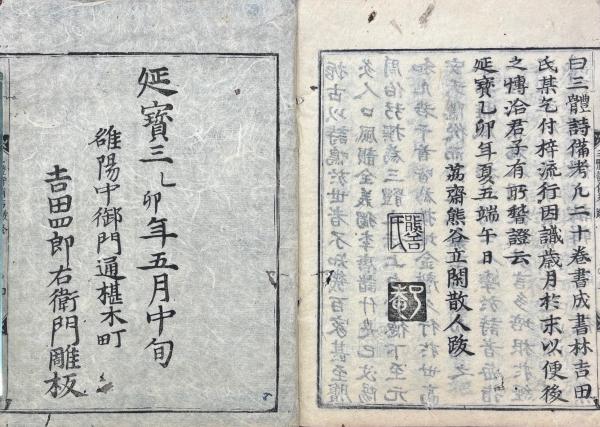 曰三體詩備考凡二十卷書成書林吉田
氏某乞付梓流行因識歳月於末以便後
之愽洽君子有所䂨證云
延寶乙卯年夏五端午日
荔齋熊谷立閑散人跋
熊谷
氏
延寶三乙卯年五月中旬
雒陽中御門通椹木町
吉田四郎右衛門雕板